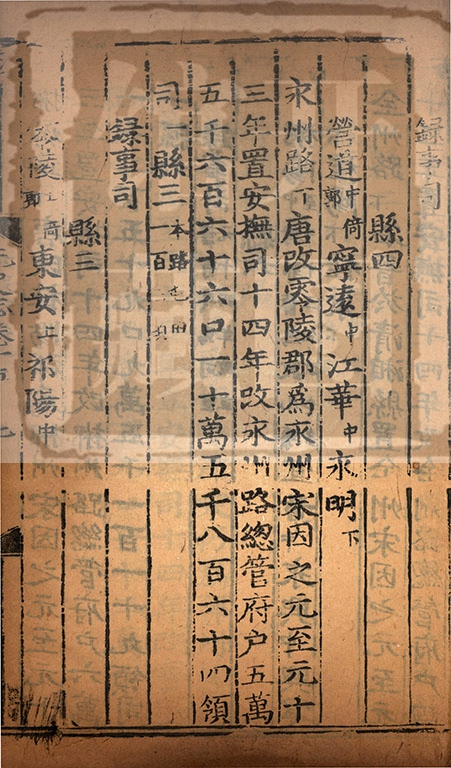 録事司
縣四
營道中倚郭寧遠中江華中永明下
永州路下唐改零陵郡為永州宋因之元至元十
三年置安撫司十四年改永州路總管府户五萬
五千六百六十六口一十萬五千八百六十四領
司一縣三本路屯田一百頃
録事司
縣三
零陵上倚郭東安上祁陽中